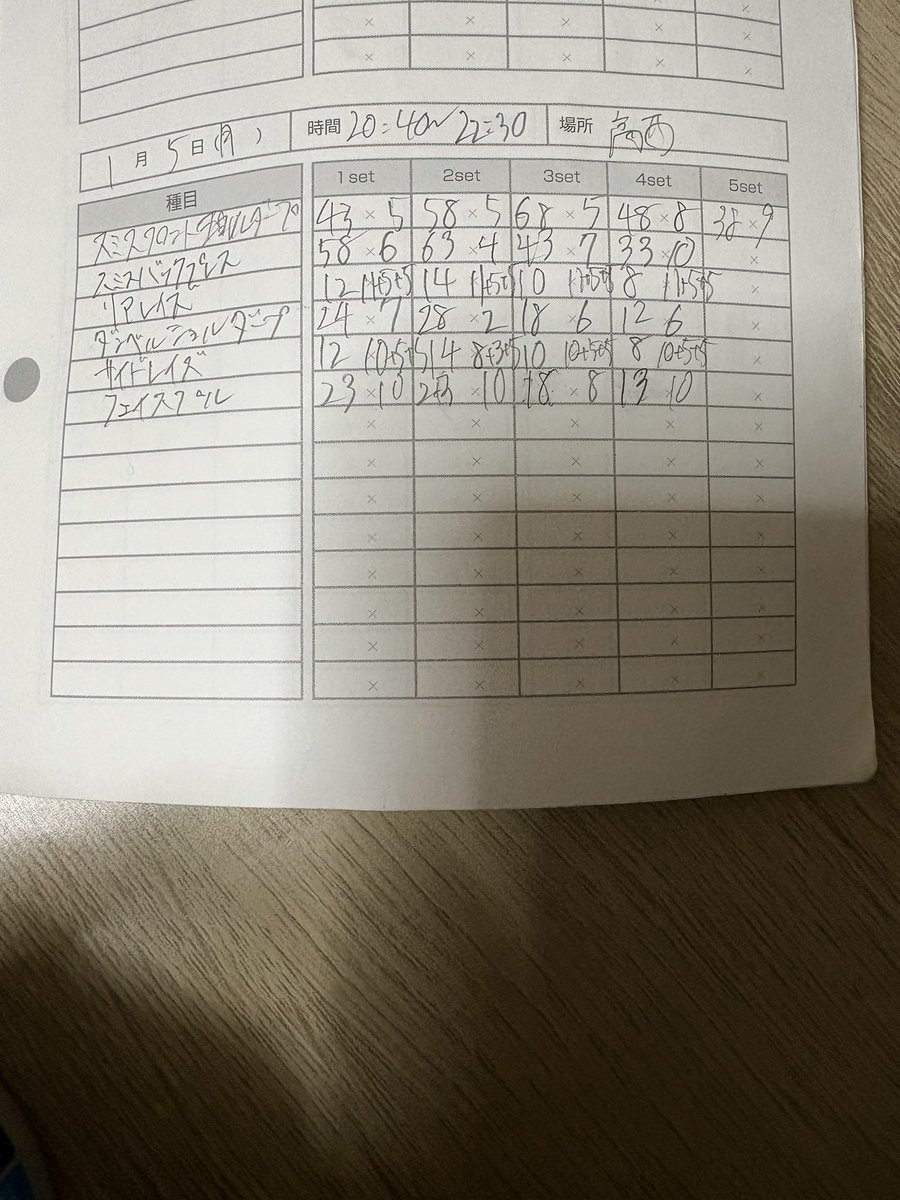 × × × ×
× × × × ×
1月5日(月) 時間 20:40~22:30 場所 高西
種目 1set 2set 3set 4set 5set
スミスフロントショルダープ 43×5 58×5 68×5 48×8 38×9
スミスバックプレス 58×6 63×4 43×7 33×10 ×
リアレイズ 12 14 10 8 ×
ダンベルショルダープ 24×7 28×2 18×6 12 6 ×
サイドレイズ 12 10+5+5 14 8+3+5 10 10+5+5 8 10+5+5 ×
フェイスプル 23×10 23×10 18×8 13×10 ×
× × × × ×
× × × × ×
× × × × ×
× × × × ×
× × × × ×
× × × × ×
× × × × ×
× × × × ×